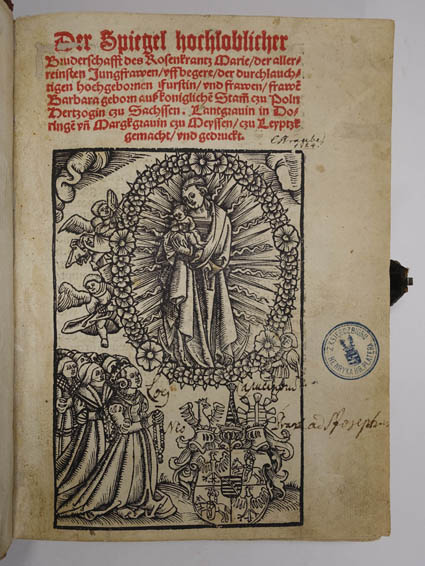 Der Spiegel hochloblicher
Bruderschafft des Rosenkrantz Marie/der aller-
reinsten Jungfrawen/vff begere/der durchlauch-
tigen hochgebornen Furstin/vnd frawen/frawē
Barbara geborn auß koniglichē Stam̄ zu Poln
Hertzogin zu Sachssen. Lantgrauin in Do-
ringē vn̄ Margkgrauin czu Meyssen/czu Leyptzk
gemacht/vnd gedruckt.
ad S Josephū